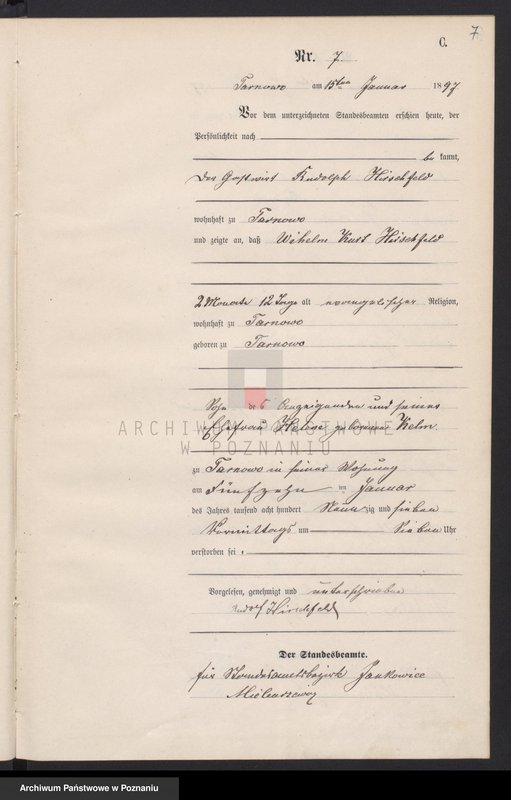 7
C.
Nr. 7
Tarnowo am 15ten Januar 1897
Vor dem unterzeichneten Standesbeamten erschien heute, der
Persönlichkeit nach
be kannt,
der Gastwirt Rudolph Hirschfeld
wohnhaft zu Tarnowo
und zeigte an, daß Wilhelm Kurt Hirschfeld
2 Monate 12 Tage alt evangelischer Religion,
wohnhaft zu Tarnowo
geboren zu Tarnowo
Sohn des Anzeigenden und seiner
Ehefrau Helene geborenen Kelm
ARCHIWUM PAŃSTWOWE
W POZNANIU
zu Tarnowo in seiner Wohnung
am Fünfzehn ten Januar
des Jahres tausend acht hundert Neun zig und sieben
Vormittags um Sieben Uhr
verstorben sei.
Vorgelesen, genehmigt und unterschrieben
Hirschfeld
Der Standesbeamte.
für Standesamtsbezirk Jankowice
Archiwum Państwowe w Poznaniu